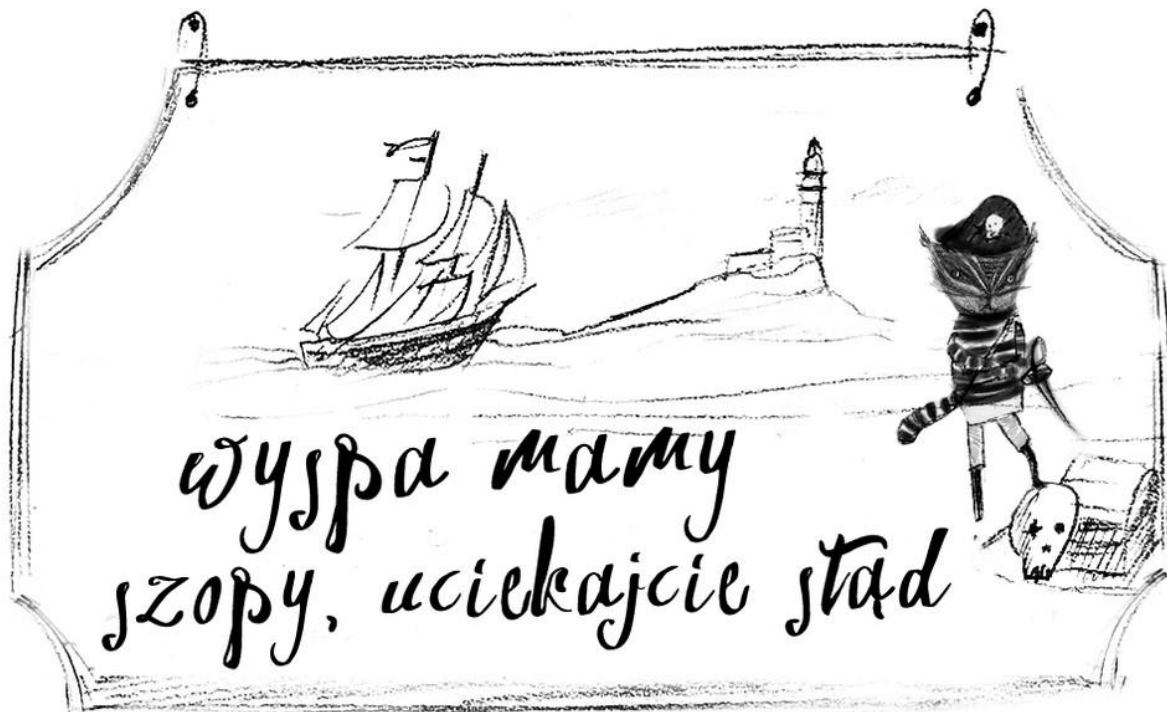 wyspa mamy
szopy, uciekajcie stąd